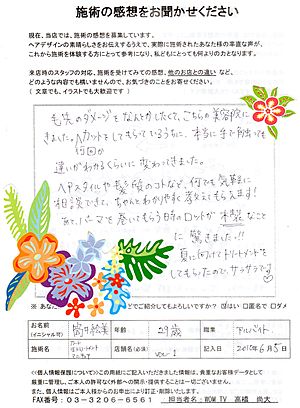 施術の感想をお聞かせください
現在、当店では、施術の感想を募集しています。
ヘアデザインの素晴らしさをお伝えするうえで、実際に施術されたあなた様の率直な声が、
これから施術を体験する方にとって参考になり、私どもにとっても何よりの力となります。
来店時のスタッフの対応、施術を受けてみての感想、他のお店との違い など、
どのような内容でも構いませんので、お気づきのことをお寄せください。
( 文章でも、イラストでも大歓迎です )
毛先のダメージをなんとかしたくて、こちらの美容院に
きました。カットをしてもらっているうちに、本当に手で触っても
何回か
違いがわかるくらいに 変わってきました。
ヘアスタイルや髪質のコトなど、何でも気軽に
相談できて、ちゃんとわかりやすく答えてもらえます!
あと、パーマを巻いてもらう時のロッドが 木製なこと
に 驚きました!!
夏に向けてトリートメントを
してもらったので、サラサラです
お名前
(イニシャル可)
筒井絵美
年齢
29歳
職業
アルバイト
施術名
カット
トリートメント
店舗名(必須)
記入日
2010年6月5日
<個人情報保護について>この用紙にご記入いただきました情報は、貴重なお客様データとして
厳重に管理し、ご本人の許可なく外部への開示・提供することは一切ございません。
個人情報はご本人様からのお申出により訂正・削除いたします。
FAX番号 03-3206-6561
担当者名:WOW TV 高橋 尚大